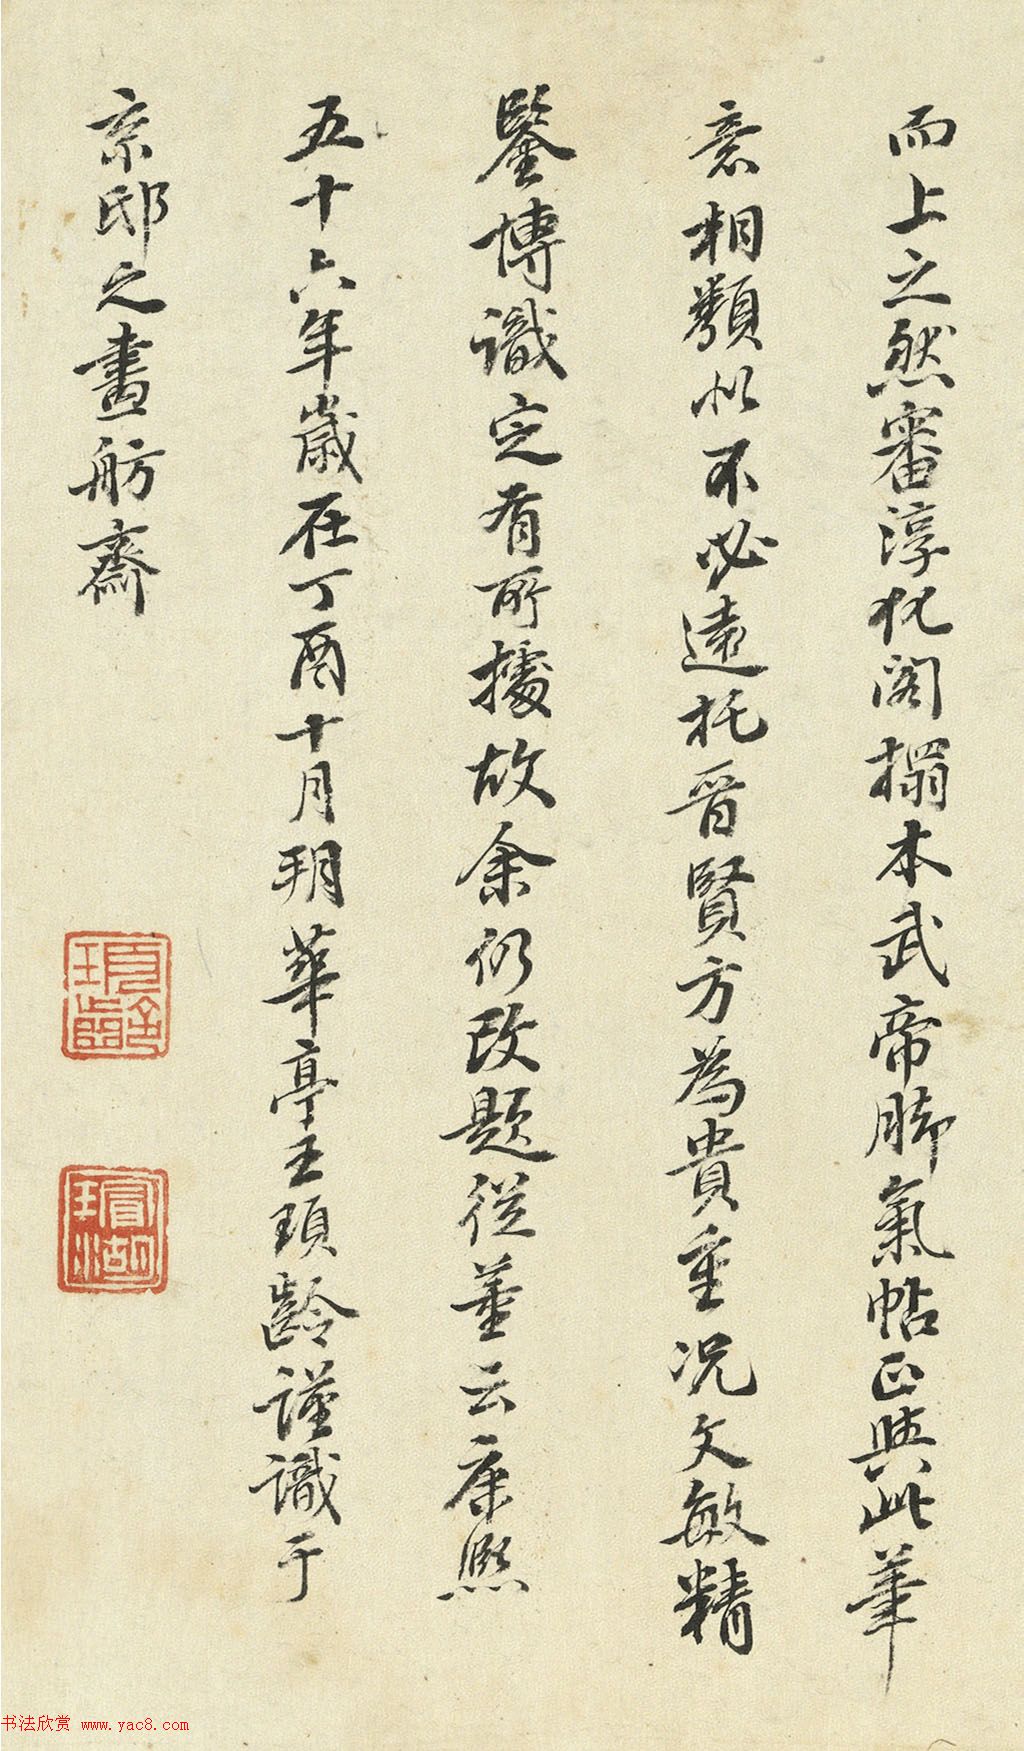 而上之然審淳化閣搨本武帝脚氣帖正與此筆
意相類似不必遠托晉賢方為貴重况文敏精
鑒博識定有所據故余仍改題從董云康熙
五十六年歲在丁酉十月朔華亭王頊齡謹識于
京邸之畫舫齋
頊齡
书法欣赏 www.yac8.com